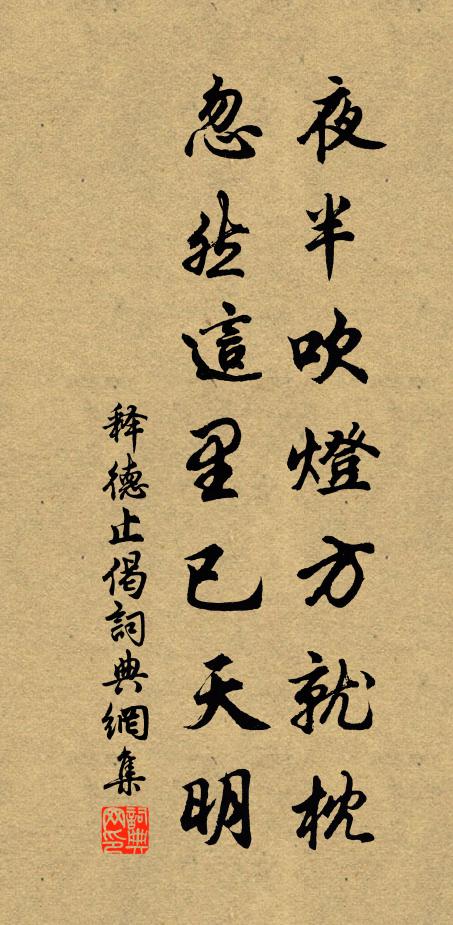 夜半吹燈方就枕
忽然這里已天明
释德止偈詞典網集
詞典网印